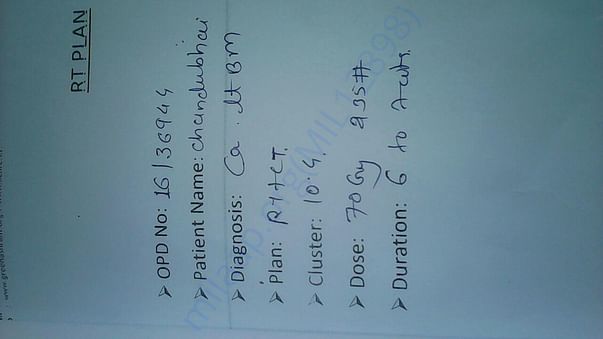 RT PLAN
➤ OPD No: 16/36944
➤ Patient Name: chandubhai
➤ Diagnosis: Ca. Lt BM
➤ Plan: RT+CT.
➤ Cluster: 10.4.
➤ Dose: 70 Gy 35#
➤ Duration: 6 to 7 wks.